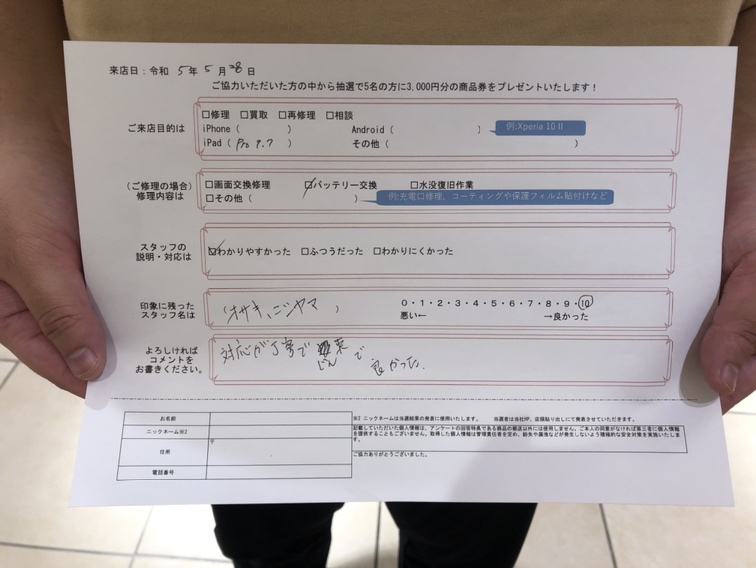 来店日：令和 5年 5月 28日
ご協力いただいた方の中から抽選で5名の方に3,000円分の商品券をプレゼントいたします！
ご来店目的は
□修理 □買取 □再修理 □相談
iPhone（ ） Android（ ） 例:Xperia 10 II
iPad（ Pro 9.7 ） その他（ ）
（ご修理の場合）
修理内容は
□画面交換修理 ☑バッテリー交換 □水没復旧作業
□その他（ ） 例:充電口修理、コーティングや保護フィルム貼付けなど
スタッフの
説明・対応は
☑わかりやすかった □ふつうだった □わかりにくかった
印象に残った
スタッフ名は
（オサキ、ニシヤマ ）
0・1・2・3・4・5・6・7・8・9・10
悪い← →良かった
よろしければ
コメントを
お書きください。
対応が丁寧で
良かった
お名前
ニックネーム※2
住所
〒
電話番号
※2 ニックネームは当選結果の発表に使用いたします。 当選者は当社HP、店頭貼り出しにて発表させていただきます。
記載していただいた個人情報は、アンケートの回答特典である商品の郵送以外には使用しません。ご本人の同意がなければ第三者に個人情報
を提供することもございません。取得した個人情報は管理責任者を定め、紛失や漏洩などが発生しないよう積極的な安全対策を実施いたしま
す。
ご協力ありがとうございました。